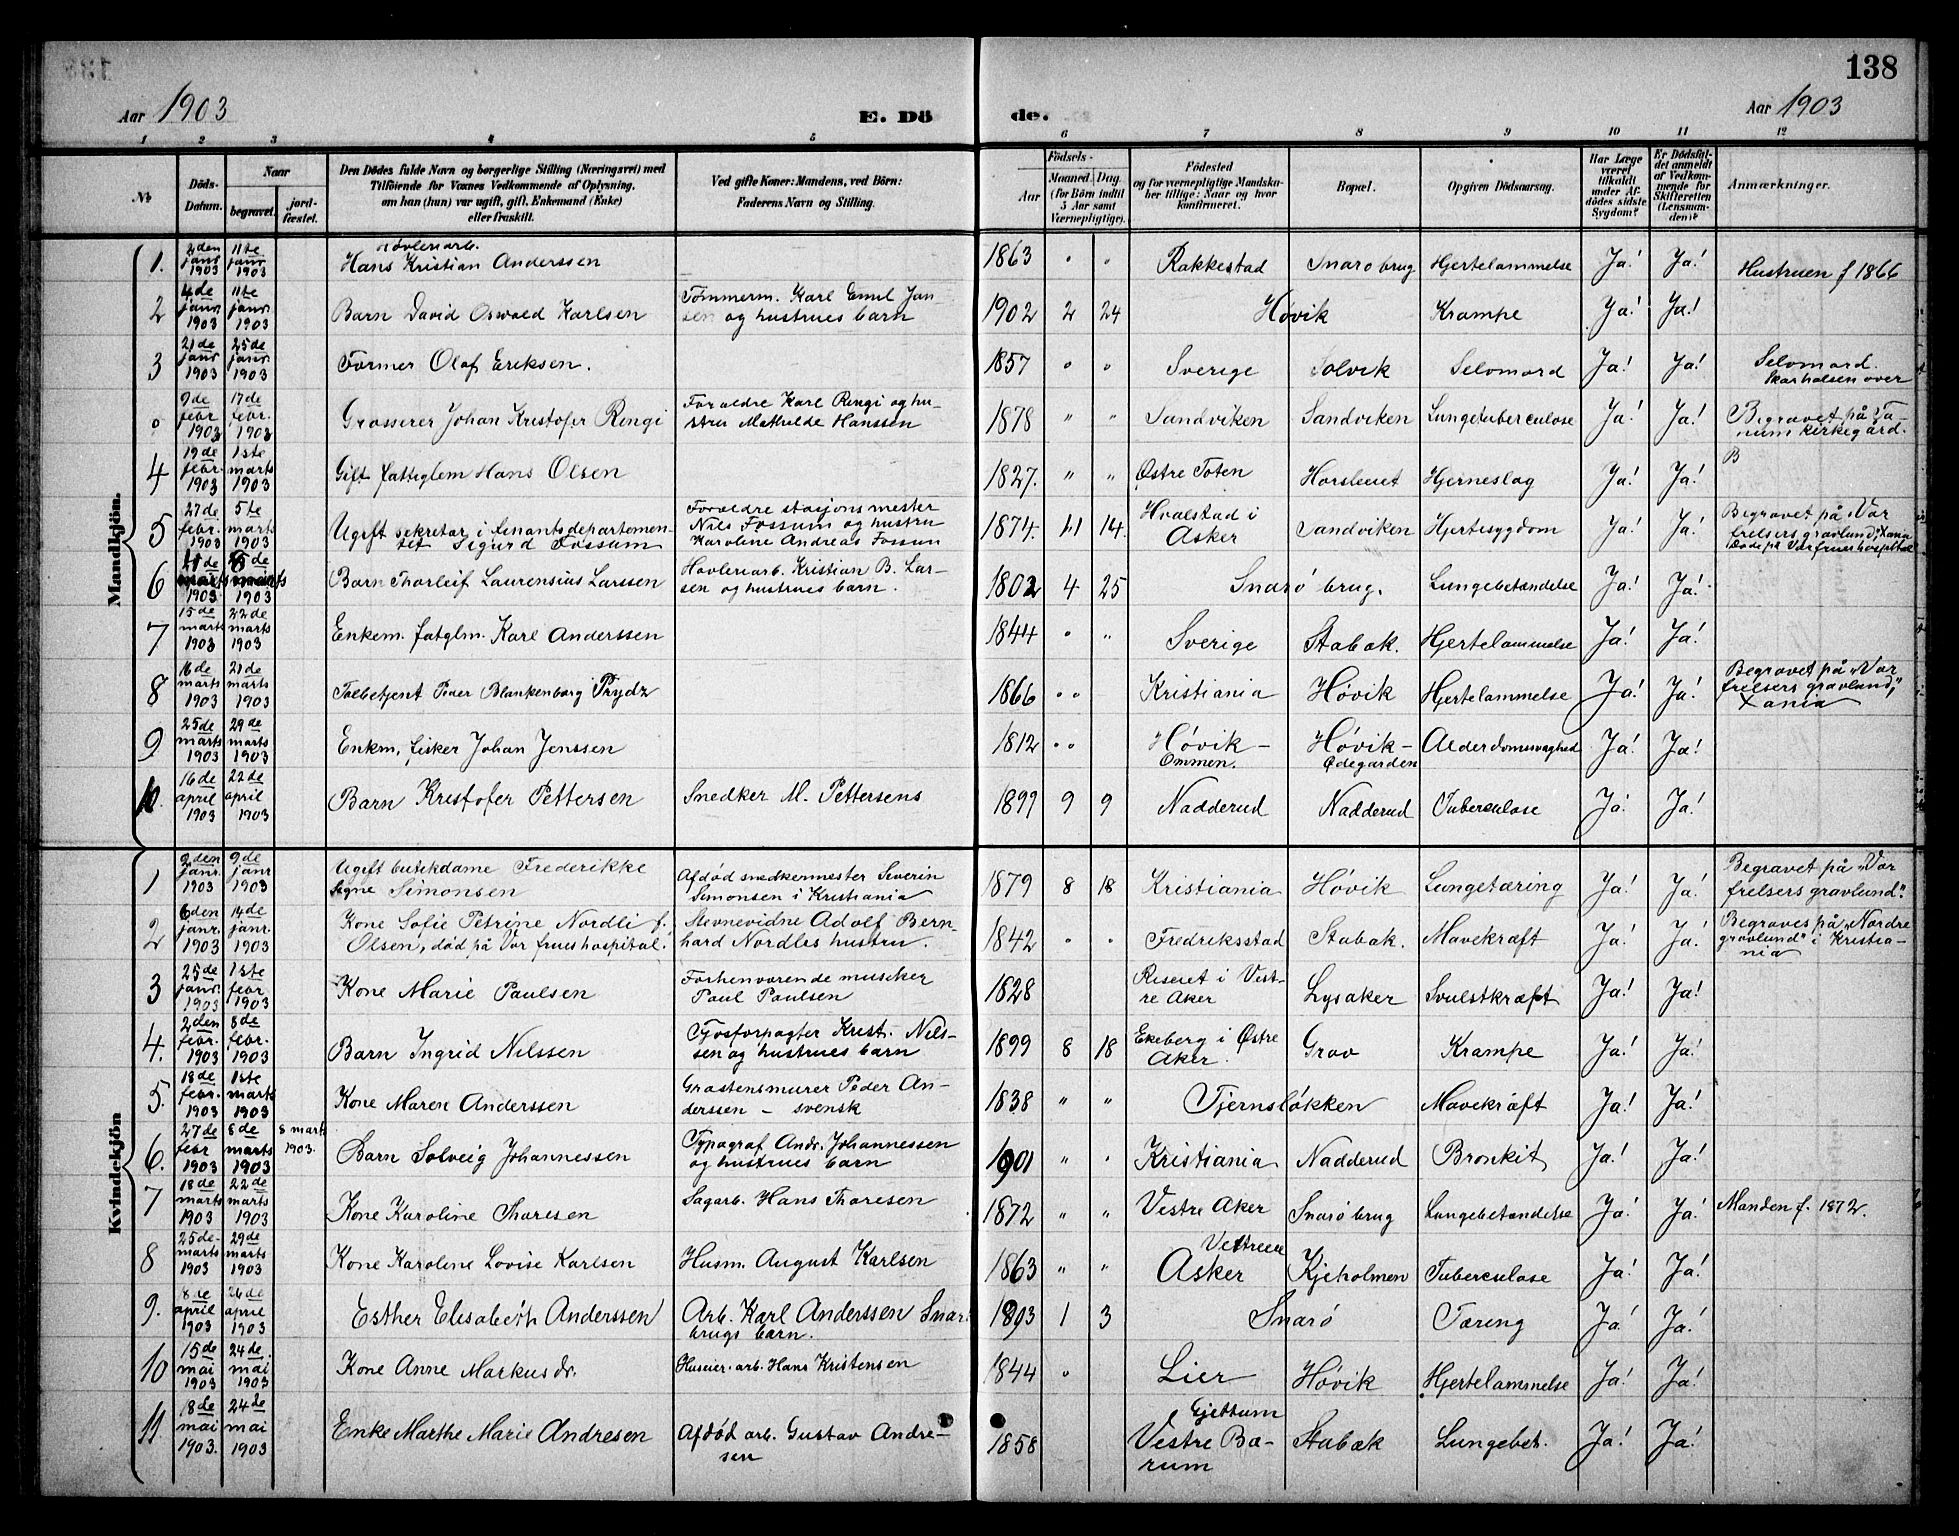 138
Aar 1903
E. Dö
de.
Aar 1903
1 2 3 4 5 6 7 8 9 10 11 12
No
Döds-Datum.
Naar
begravet.
jord-fæstet.
Den Dödes fulde Navn og borgerlige Stilling (Næringsvei) med
Tilföiende for Voxnes Vedkommende af Oplysning,
om han (hun) var ugift, gift, Enkemand (Enke)
eller fraskilt.
Ved gifte Koner: Mandens, ved Börn:
Faderens Navn og Stilling.
Födsels-
Aar
Maaned Dag
(for Börn indtil
5 Aar samt
Værnepligtige).
Födested
og for værnepligtige Mandska-
ber tillige: Naar og hvor
konfirmeret.
Bopæl.
Opgiven Dödsaarsag.
Har Læge
været
tilkaldt
under Af-
dödes sidste
Sygdom?
Er Dödsfal-
det anmeldt
af Vedkom-
mende for
Skifteretten
(Lensman-
den)?
Anmærkninger.
Mandkjön.
1. 2den janr 1903 11te janr 1903 Høvleriarb. Hans Kristian Anderssen 1863 " " Rakkestad Snarøbrug Hjertelammelse Ja! Ja! Hustruen f 1866
2 4de janr. 1903 11te janr. 1903 Barn David Oswald Karlsen Tømmerm. Karl Emil Jan
sen og hustrues barn 1902 2 24 Høvik Krampe Ja! Ja!
3 21de janr 1903 25de janr. 1903 Former Olaf Eriksen. 1857 " " Sverige Solvik Selvmord Ja! Ja! Selvmord.
Skar halsen over
0 9de febr 1903 17de febr. 1903 Grosserer Johan Kristofer Ringi Foræeldre Karl Ringi og hu-
stru Mathilde Hanssen 1878 " " Sandviken Sandviken Lungetuberculose Ja! Ja! Begravet på Ta-
num kirkegård.
4 19de febr. 1903 1ste marts 1903 Gift fattiglem Hans Olsen 1827. " " Østre Toten Horsleret Hjerneslag Ja! Ja! B
5 27de febr. 1903 5te marts 1903 Ugift sekretær i finantsdepartemen-
tet Sigurd Fossum Forældre stasjonsmester
Nils Fossum og hustru
Karoline Andreas Fossum 1874. 11 14. Hvalstad i
Asker Sandviken Hjertesygdom Ja! Ja! Begravet på "Vor
frelsers gravlund", Xania
Døde på Vor frues hospital
6 11de marts 1903 15de marts 1903 Barn Thorleif Laurensius Larssen Høvleriarb. Kristian B. Lar-
sen og hustrues barn. 1802 4 25 Snarø brug. Lungebetændelse Ja! Ja!
7 15de marts 1903 22de marts 1903 Enkem. fatglm. Karl Anderssen 1844 " " Sverige Stabæk. Hjertelammelse Ja! Ja!
8 16de marts 1903 21de marts 1903 Tolbetjent Peder Blankenborg Prydz 1866 " " Kristiania Høvik Hjertelammelse Ja! Ja! Begravet på "Vor
frelsers gravlund",
Xania
9 25de marts 1903 29de marts 1903 Enkm. fisker Johan Jenssen 1812 " " Høvik-
Ommen. Høvik-
Ødegården Alderdomsvaghed Ja! Ja!
10. 16de april 1903 22de april 1903 Barn Kristofer Pettersen Snedker M. Pettersens 1899 9 9 Nadderud Nadderud Tuberculose Ja! Ja!
Kvindekjön
1 2den janr. 1903 9de janr 1903 Ugift butikdame Frederikke
Signe Simonsen Afdød snedkermester Severin
Simonsen i Kristiania 1879 8 18 Kristiania Høvik Lungetæring Ja! Ja! Begravet på "Vor
frelsers gravlund".
2 6den janr. 1903 14de janr. 1903 Kone Sofie Petrine Nordli f.
Olsen, død på Vor frues hospital. Stevnevidne Adolf Bern-
hard Nordlis hustru. 1842 " " Fredriksstad Stabæk. Mavekræft Ja! Ja! Begraves på "Nordre
gravlund" i Kristia-
nia
3 25de janr. 1903 1ste febr 1903 Kone Marie Paulsen Forhenværende musiker
Paul Paulsen 1828 Riseret i Vest-
re Aker Lysaker Svulstkræft Ja! Ja!
4. 2den febr. 1903 8de febr. 1903 Barn Ingrid Nilssen Fjøsforpagter Krist. Nils-
sen og hustrues barn 1899 8 18 Ekeberg i Østre
Aker. Grav Krampe Ja! Ja!
5. 18de febr. 1903 1ste marts 1903 Kone Maren Anderssen Gråstensmurer Peder An-
derssen - svensk 1838 " " Tjernsløkken Mavekræft Ja! Ja!
6. 27de febr 1903 8de marts 1903 8 marts 1903. Barn Solveig Johannessen Typograf Andr. Johannessen
og hustrues barn 1901 " " Kristiania Nadderud Bronkit Ja! Ja!
7 18de marts 1903 22de marts 1903 Kone Karoline Thoresen Sagarb. Hans Thoresen 1872 " " Vestre Aker Snarøbrug Lungebetændelse Ja! Ja! Manden f. 1872.
8 25de marts 1903 29de marts 1903 Kone Karoline Lovise Karlsen Husm. August Karlsen 1863 " " Asker Kjeholmen Tuberculose Ja! Ja!
9. 8de april 1903 26de april 1903 Esther Elisabeth Anderssen Arb. Karl Anderssen Snar.
brugs barn. 1893 1 3 Snarø Tæring Ja! Ja!
10 15de mai 1903 24de mai 1903 Kone Anne Markusdr. Huseier. arb. Hans Kristensen 1844 " Lier Høvik Hjertelammelse Ja! Ja!
11 18de mai 1903. 24de mai 1903 Enke Marthe Marie Andresen Afdød arb. Gustav Andre-
sen 1858 Gjettum
Vestre Bæ-
rum Stabæk Lungebet. Ja! Ja!